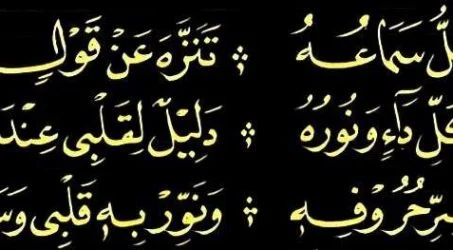 لُّ سَمَاعُهُ ؞ تَنَزَّهَ عَنْ قَوْلِ
كُلِّ دَآءٍ وَنُورُهُ ؞ دَلِيْلٌ لِقَلْبِى عِنْدَ
سِرِّ حُرُوْفِهِ ؞ وَنَوِّرْ بِهِ قَلْبِى وَسَ